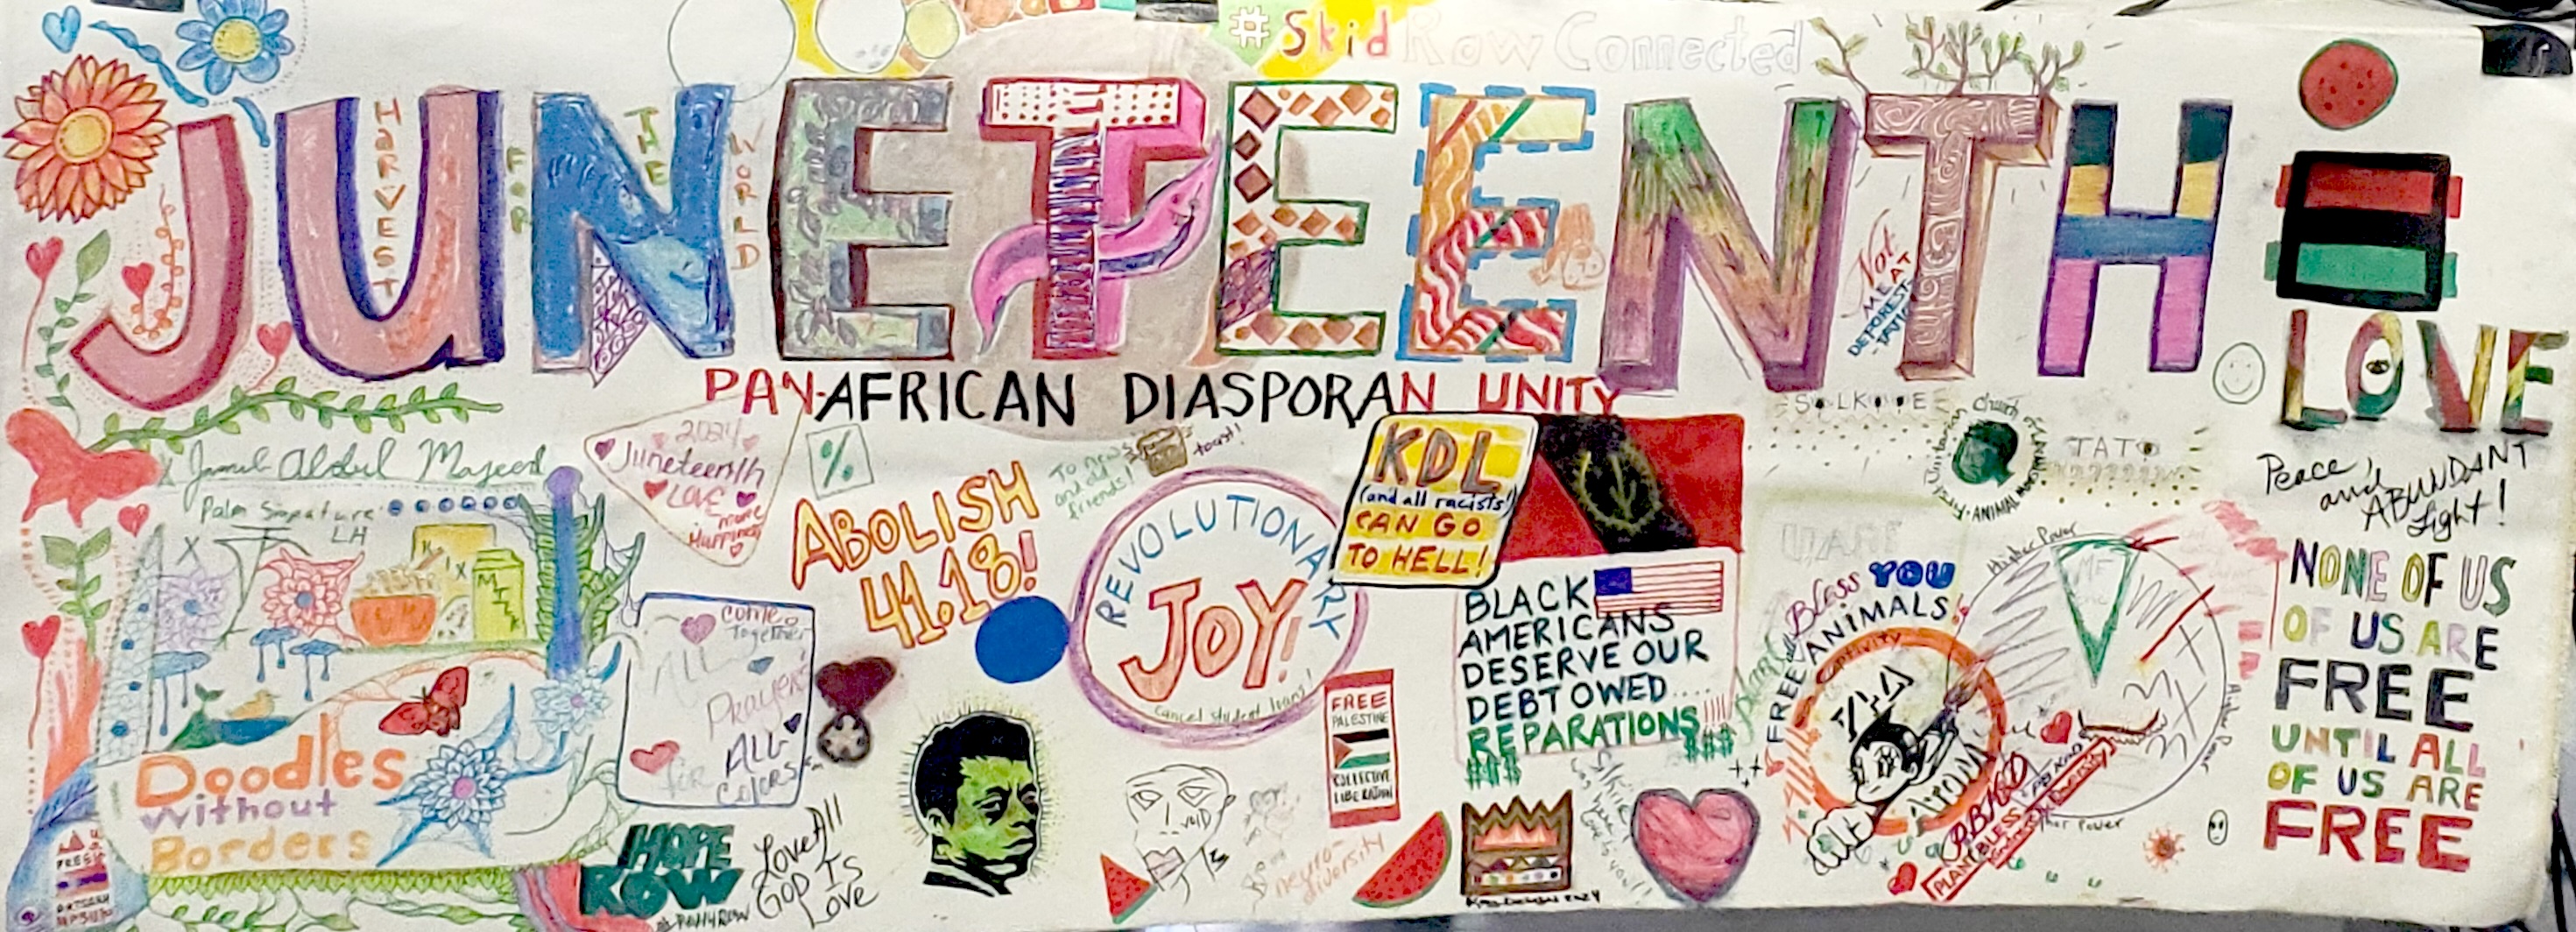 #Skid Row Connected
JUNETEENTH
HARVEST
FOR
THE
WORLD
Not
MEAT
DEFOREST-
TATION
LOVE
PAN-AFRICAN DIASPORAN UNITY
Jamil Abdul Majeed
2024
Juneteenth
LOVE
more
Happiness
%
To new
and old
friends!
toast!
ABOLISH
41.18!
REVOLUTIONARY
JOY!
cancel student loans!
KDL
(and all racists!)
CAN GO
TO HELL!
BLACK
AMERICANS
DESERVE OUR
DEBT OWED....
REPARATIONS!!!!
$$$
$$$
First Unitarian Church of
ANIMAL
TATO
Peace,
and
ABUNDANT
Light!
LH
MILK
Doodles
Without
Borders
Come
Together
ALL
Prayers
for ALL
Colors
HOPE
ROW
Love All
GOD IS
Love
VOID
neuro-
diversity
FREE
PALESTINE
COLLECTIVE
LIBERATION
Bless YOU
ANIMALS!
FREE all
Captivity
ATOM
Higher Power
Higher Power
PLANT BLESS
NONE OF US
OF US ARE
FREE
UNTIL ALL
OF US ARE
FREE